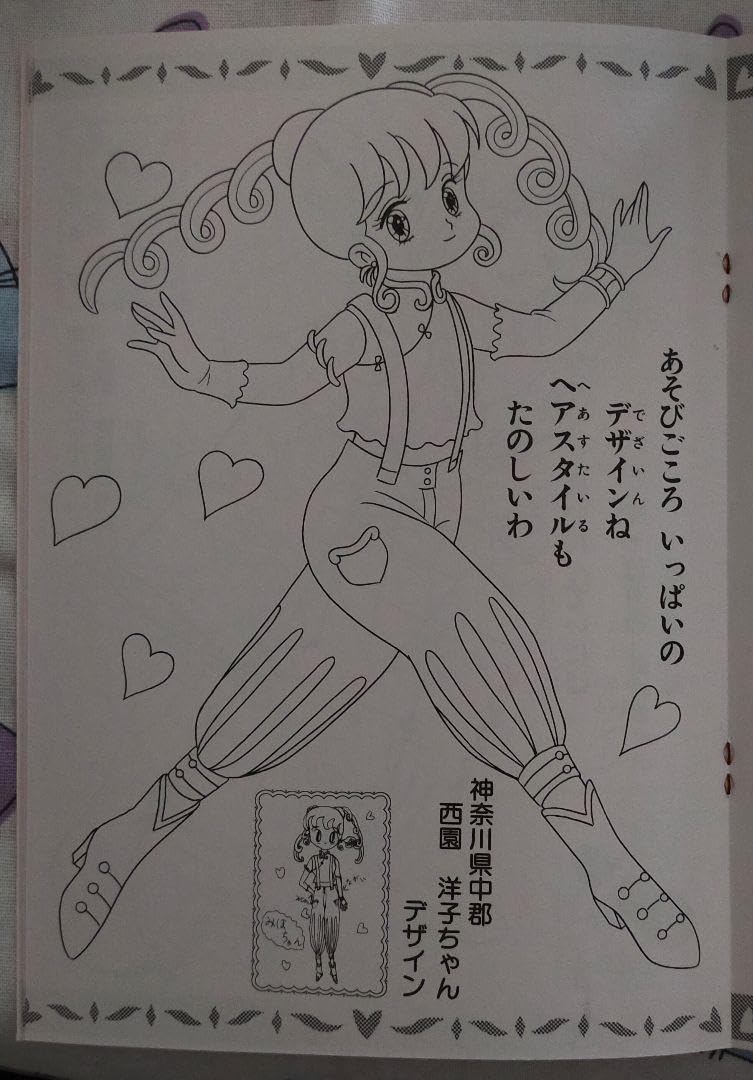 あそびごころ いっぱいの
デザインね
でざいん
ヘアスタイルも
へあすたいる
たのしいわ
神奈川県中郡
西園 洋子ちゃん
デザイン
みほ
ちゃん